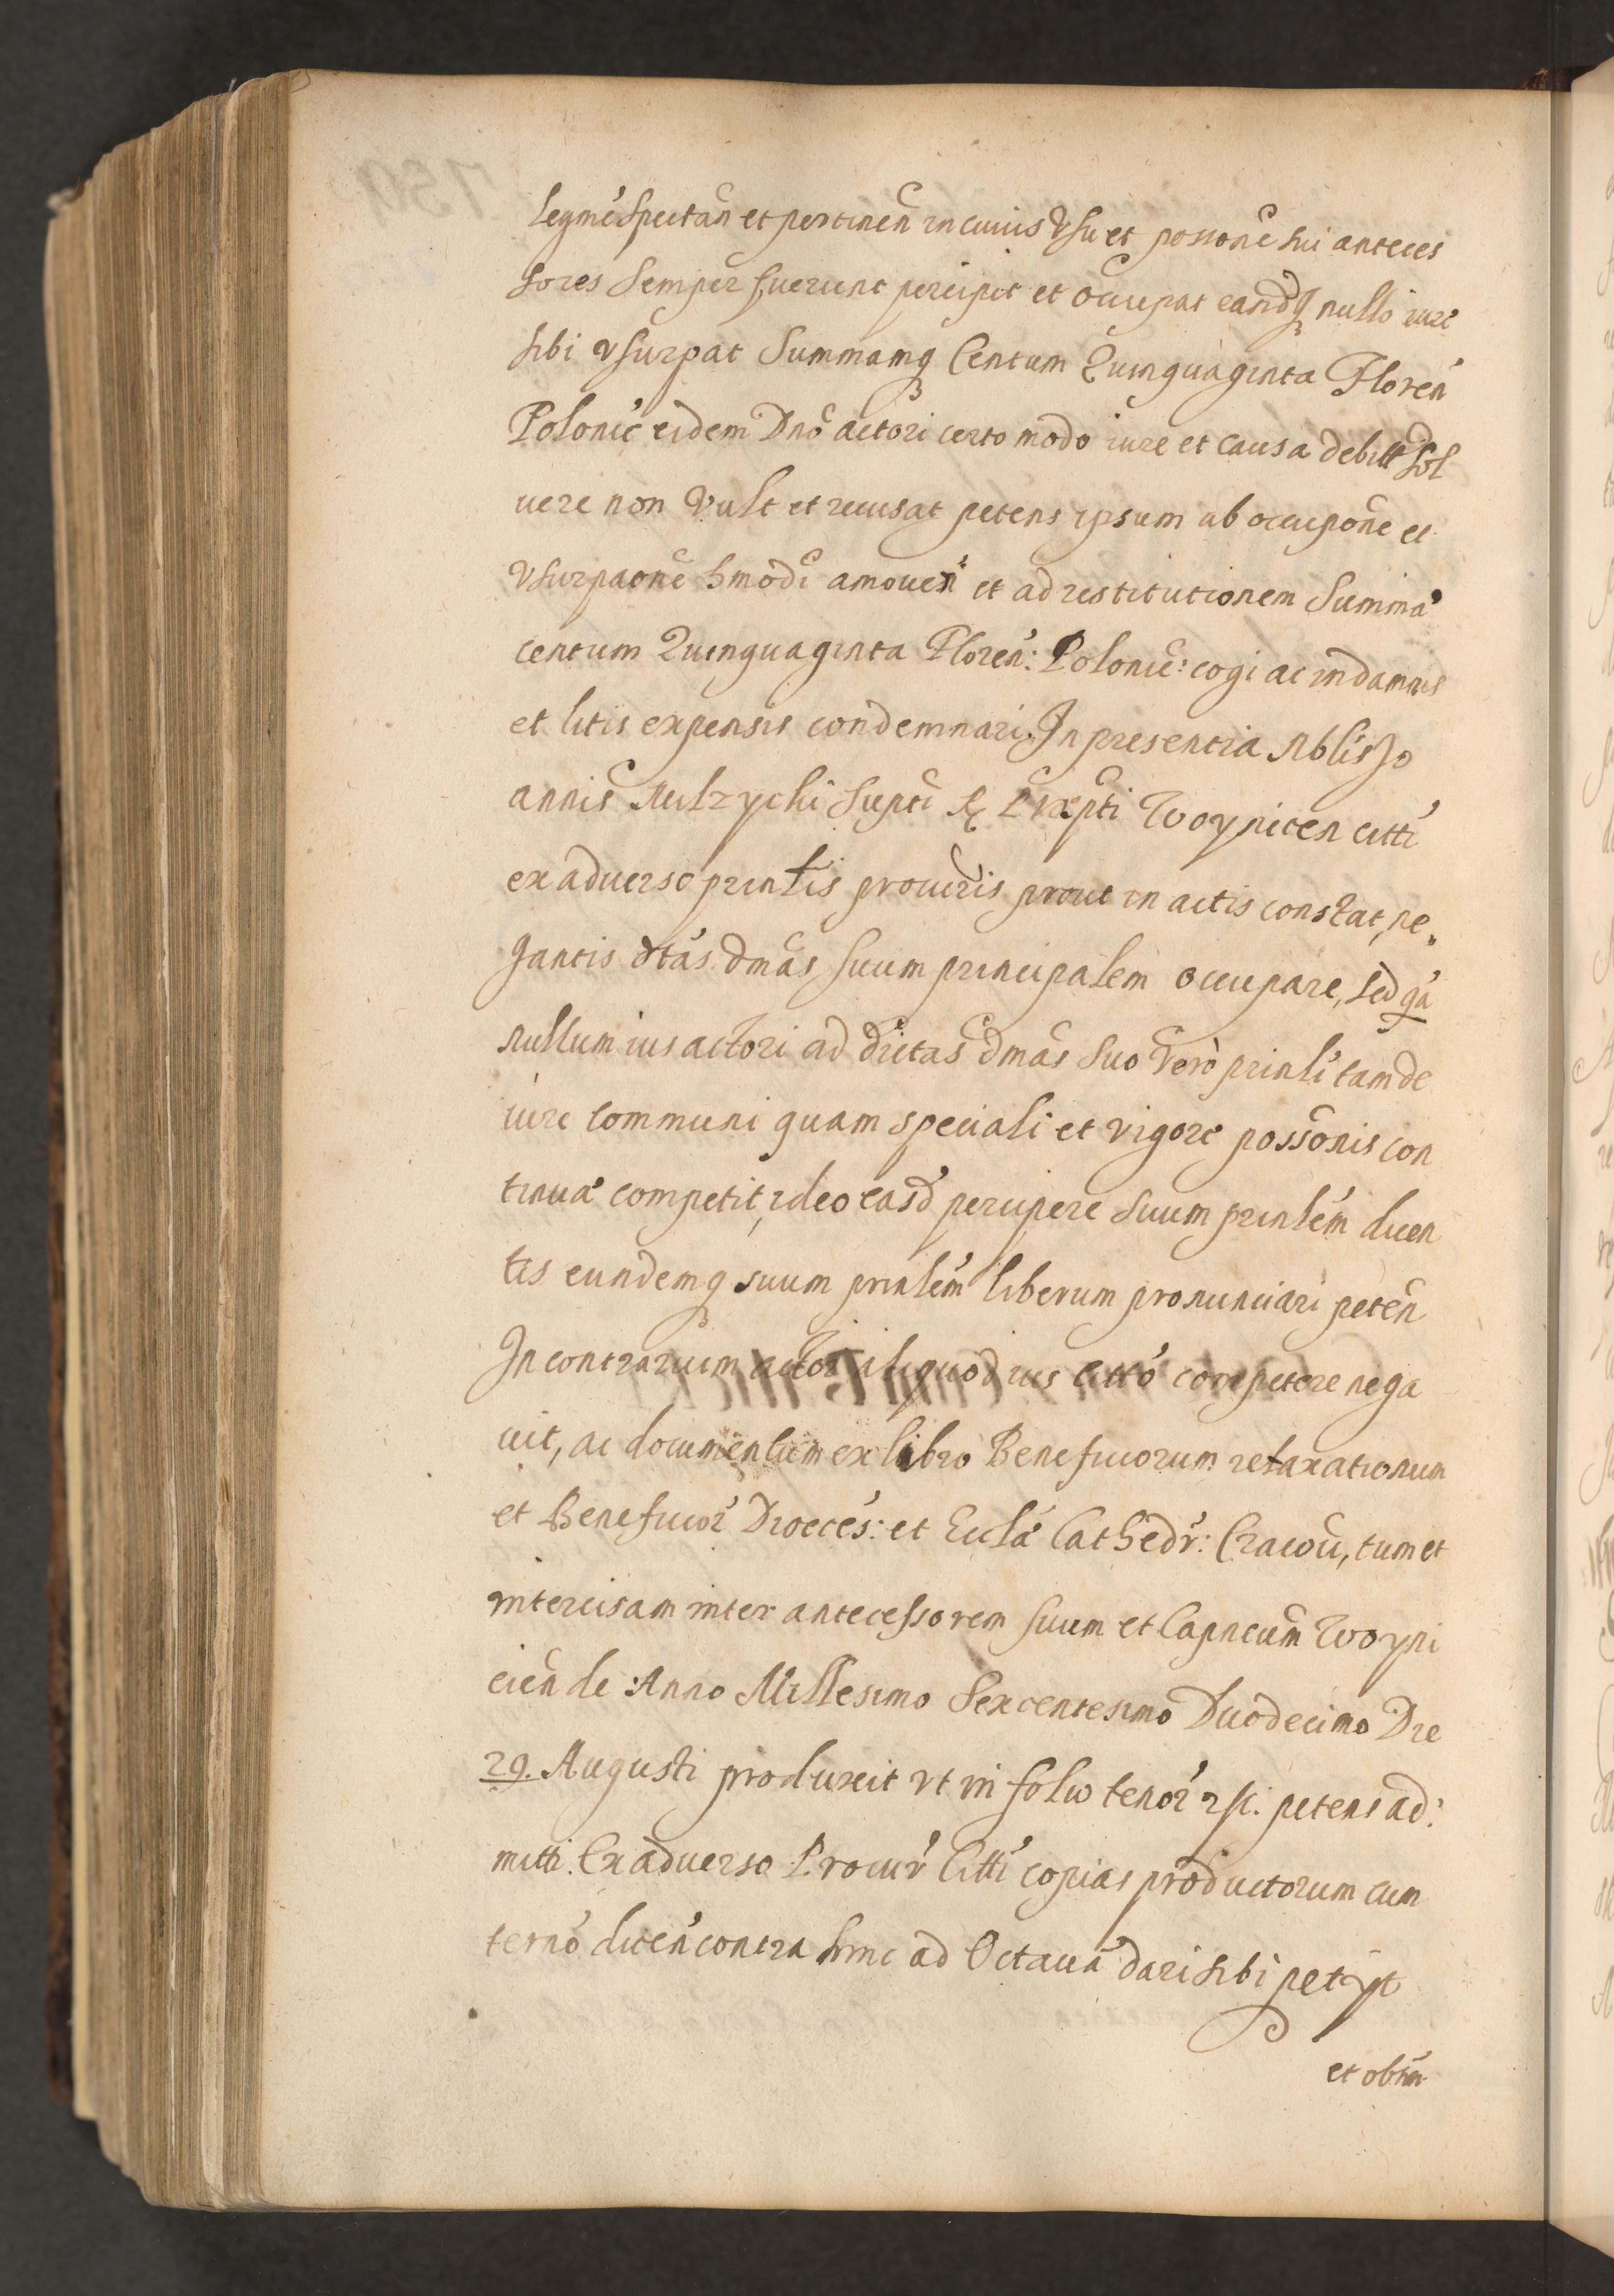 legmē spectan̄ et pertinen̄ in cuius Vsu et possone sui anteces
sores semper fuerunt percipit et occupat eandq nullo iure
sibi vsurpat Summamq Centum Quinquaginta Floren̄
Polonic̄ eidem Dno actori certo modo iure et causa debit Sol
uere non Vult et recusat petens ipsum ab occupone et
Vsurpaone hmodi amoueri et ad restitutionem Summa
centum Quinquaginta Floren̄: Polonic̄: cogi ac in damnis
et litis expensis condemnari. In presentia Nblis Jo
annis Milzychi Supti Woynicen citti
ex aduerso prinlis procuris prout in actis constat, ne„
gantis dtas dmas suum principalem occupare, sed qa
nullum ius actori ad dictas dmas suo Vero prinli tam de
iure communi quam speciali et vigore possonis con
tinua competit, ideo easd percipere suum prinlem dicen
tis eundemq suum prinlem liberum pronunciari peten̄
In contrarium actor aliquod ius citto competere nega
uit, ac documentum ex libro Beneficiorum retaxationum
et Beneficior Dioeces: et Eccla Cathedr: Cracou, tum et
intercisam inter antecessorem suum et Capneum Woyni
cien de Anno Millesimo Sexcentesimo Duodecimo Die
29. Augusti produxit vt in folio tenor rsc. petens ad:
mitti. Ex aduerso Procur Citti copias productorum cum
terno dicen contra hinc ad Octaua dari sibi petyt
et obtin